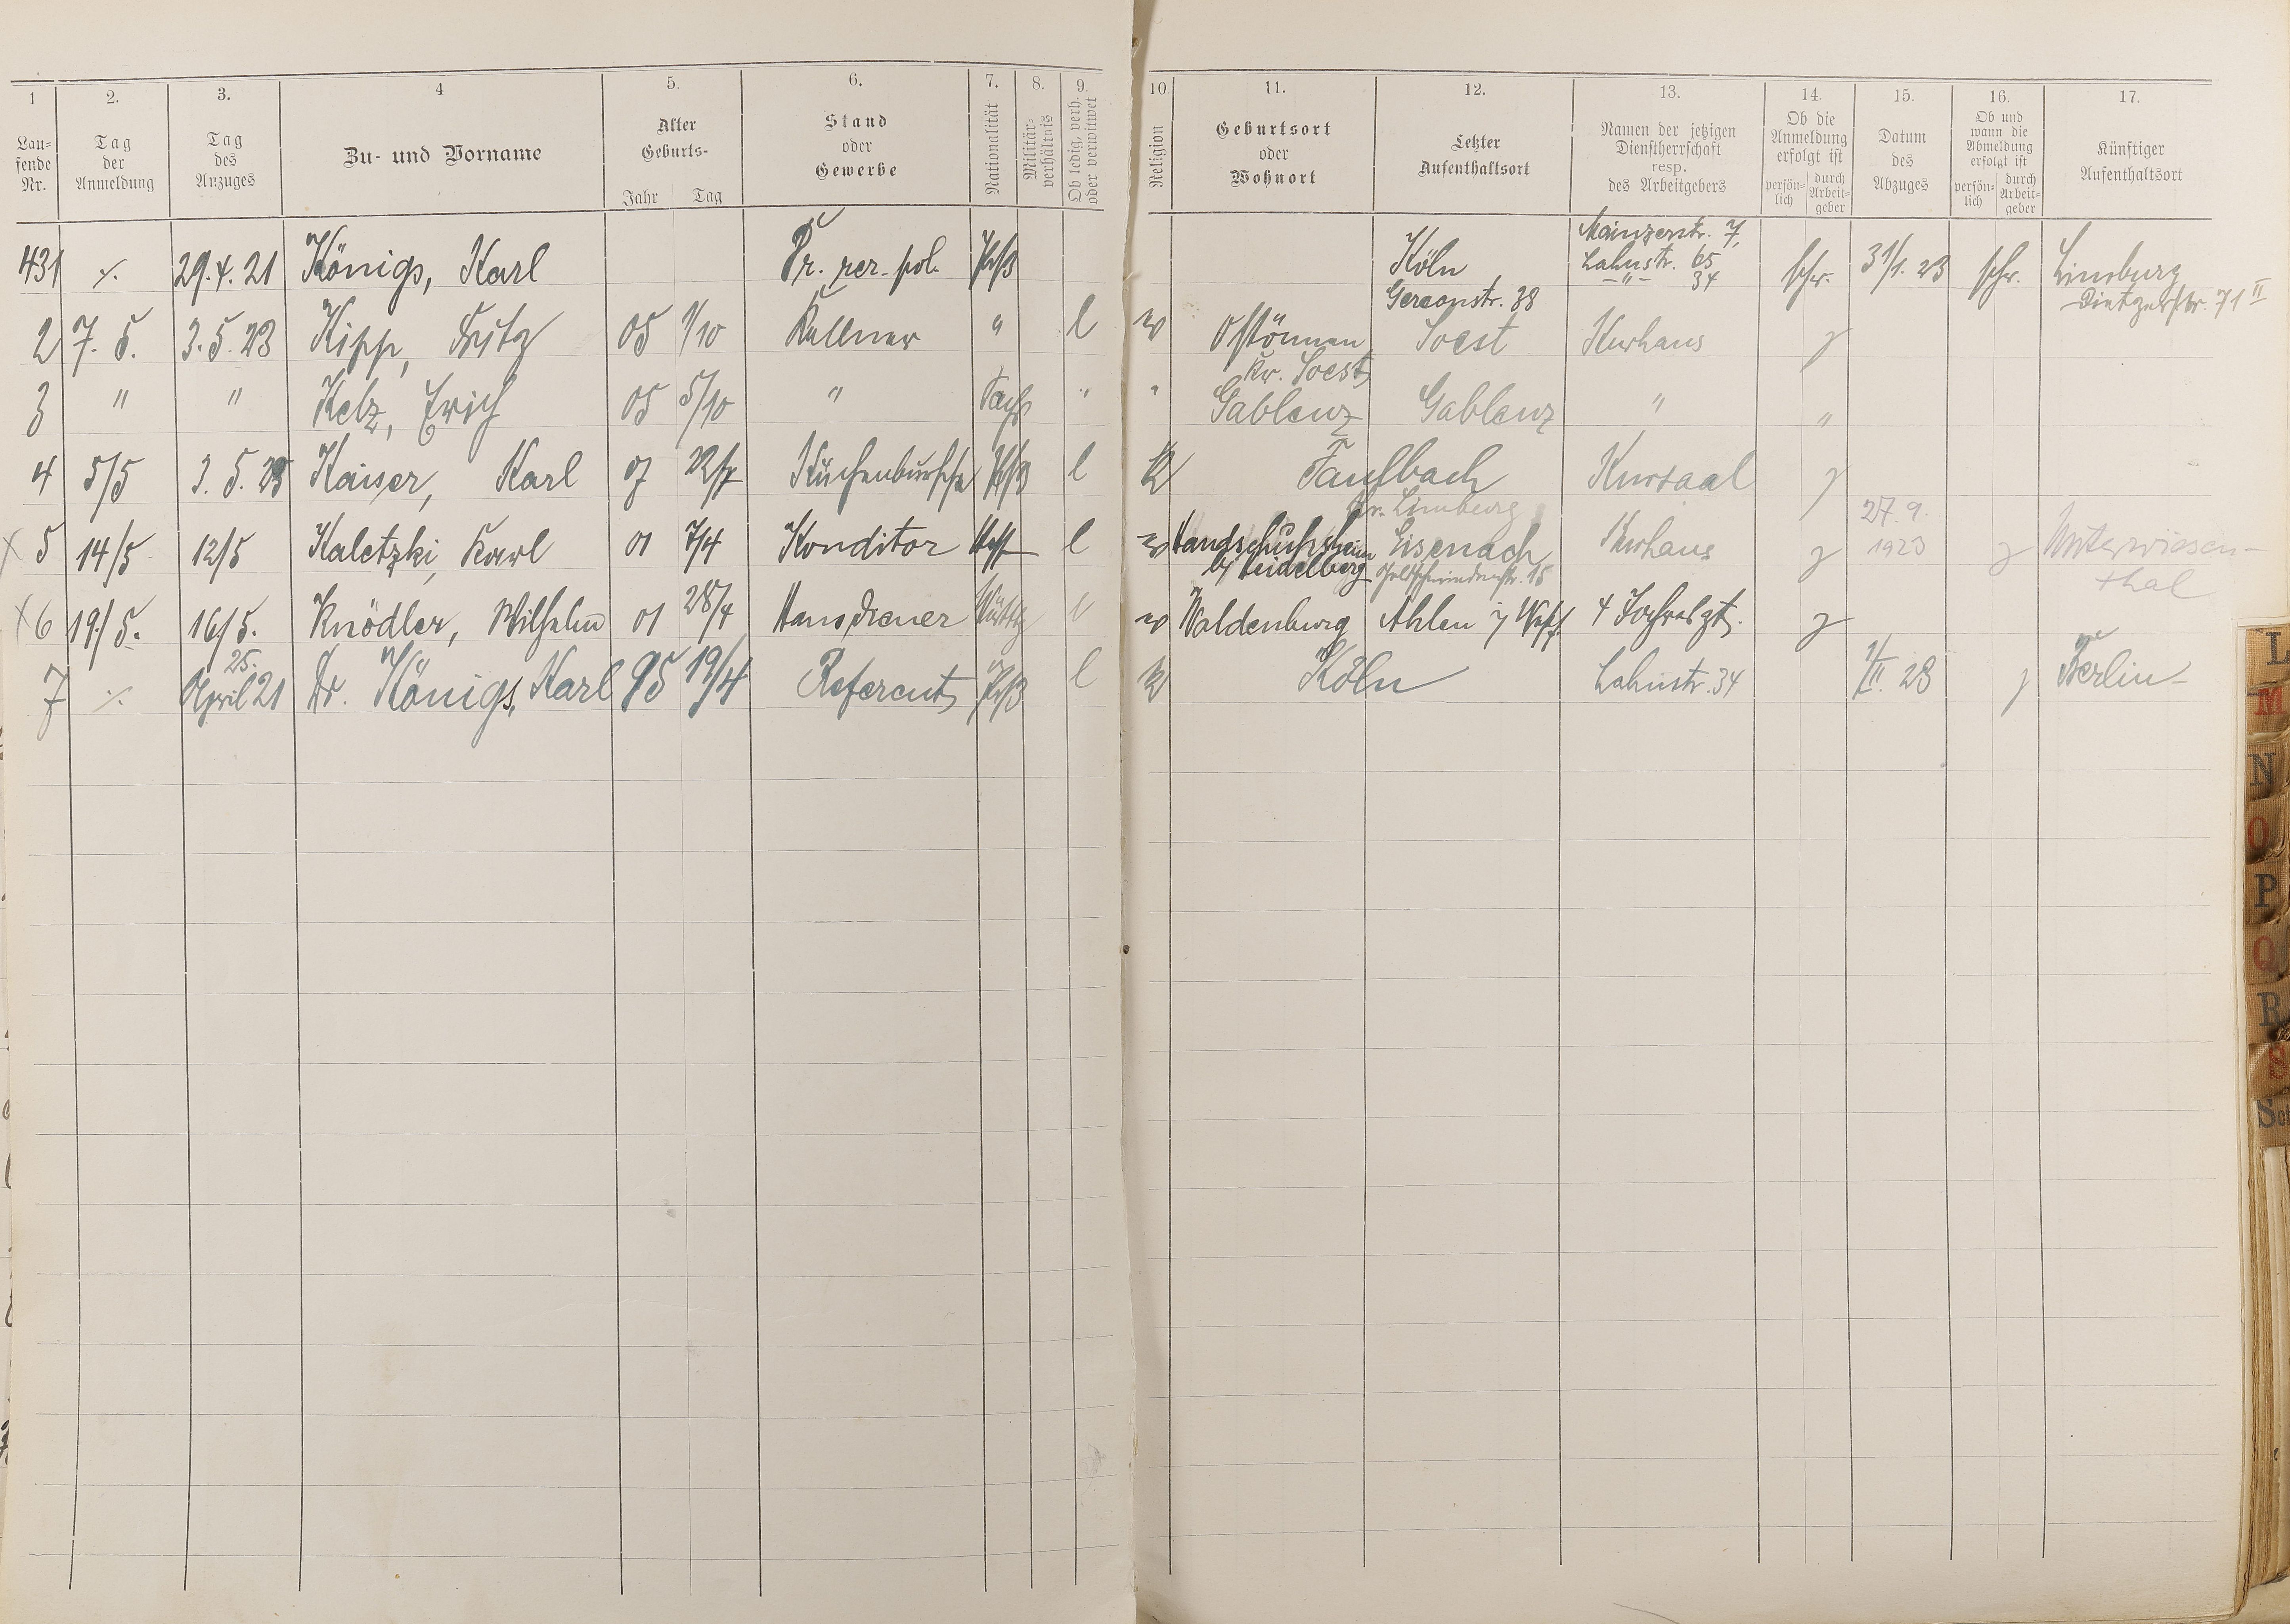 1 2. 3. 4 5. 6. 7. 8. 9. 10. 11. 12. 13. 14. 15. 16. 17.
Lau-
fende
Nr.
Tag
der
Anmeldung
Tag
des
Anzuges
Zu- und Vorname
Alter
Geburts-
Jahr Tag
Stand
oder
Gewerbe
Nationalität
Militär-
verhältnis
Ob ledig, verh.
oder verwitwet
Religion
Geburtsort
oder
Wohnort
Letzter
Aufenthaltsort
Namen der jetzigen
Dienstherrschaft
resp.
des Arbeitgebers
Ob die
Anmeldung
erfolgt ist
persön-
lich
durch
Arbeit-
geber
Datum
des
Abzuges
Ob und
wann die
Abmeldung
erfolgt ist
persön-
lich
durch
Arbeit-
geber
Künftiger
Aufenthaltsort
431 ./. 29.4.21 Königs, Karl Dr. rer. pol. Prß Köln
Gereonstr. 38
Mainzerstr. 7,
Lahnstr. 65
-"- 34
schr. 31/1. 23 schr. Limburg
71 II
2 7. 5. 3. 5. 23 Kipp, Fritz 05 1/10 Kellner " l Ostönnen
Kr. Soest
Soest Kurhaus
3 " " Kelz, Erich 05 5/10 " Sachs " " Gablenz Gablenz " "
4 5/5 3. 5. 23 Kaiser, Karl 07 22/7 Küchenbursche Prß l K Faulbach
Kr. Limburg
Kursaal
x 5 14/5 12/5 Kaletzki, Karl 01 7/4 Konditor l Handschuhsheim
b/ Heidelberg
Eisenach
15
Kurhaus 27. 9.
1923
Unterwiesen-
thal
x 6 19/5. 16/5. Knödler, Wilhelm 01 28/4 Hausdiener Württbg l Waldenburg Ahlen i/ Westf. 4 Jahreszt.
7 ./. 25.
April 21 Dr. Königs, Karl 95 19/4 Referent Prß l K Köln Lahnstr. 34 1/II. 23 Berlin
L
M
N
O
P
Q
R
S